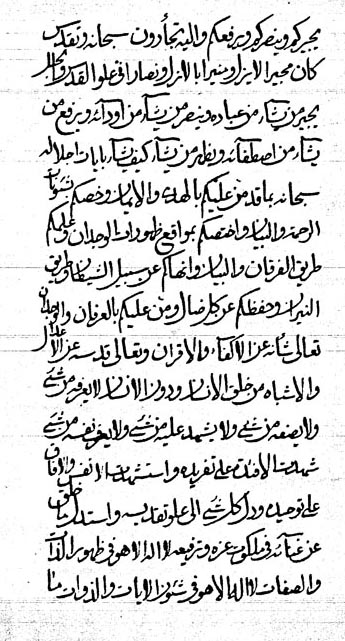 يجيركم وينصركم ويرفعكم واليه تجأرون سبحانه وتقدس
كان مجيرا لايزل ومنيرا بالانزل ونصارا في علو القدس
يجير من يشاء من عباده وينصر من يشاء من اودائه ويرفع من
يشاء من اصطفائه ويظهر من يشاء كيف يشاء بايات اجلاله
سبحانه بما قد من عليكم بالهدى والايمان وخصكم
الرحمة والبيان واختصكم بمواقع ظهورات الوجدان وعلمكم
طريق الفرقان والبيان وانهاكم عن سبيل الشيطان وطريق
النيران وحفظكم عن كل ضال ومن عليكم بالعرفان
تعالى شأنه عن الاكفاء والاقران وتعالى قدسه عن
والاشباه من خلق الانسان ودون الانسان لا يعرفه من شئ
ولا يصفه من شئ ولا يشهد عليه من شئ ولا يعرف نفسه من شئ
شهدت الافئدة على تفريده واستشهدت الانفس والافاق
على توحيده ودل كل شئ الى علو تقديسه واستدل
عن غنائه في ملكوت عزه وترفيعه لا اله الا هو في ظهور الذات
والصفات لا اله الا هو في شئون الايات والذوات